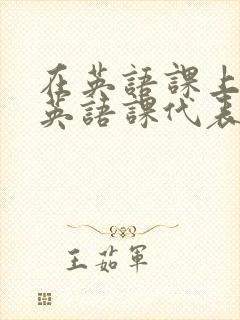 在英語課上
英語課代表
王茹軍